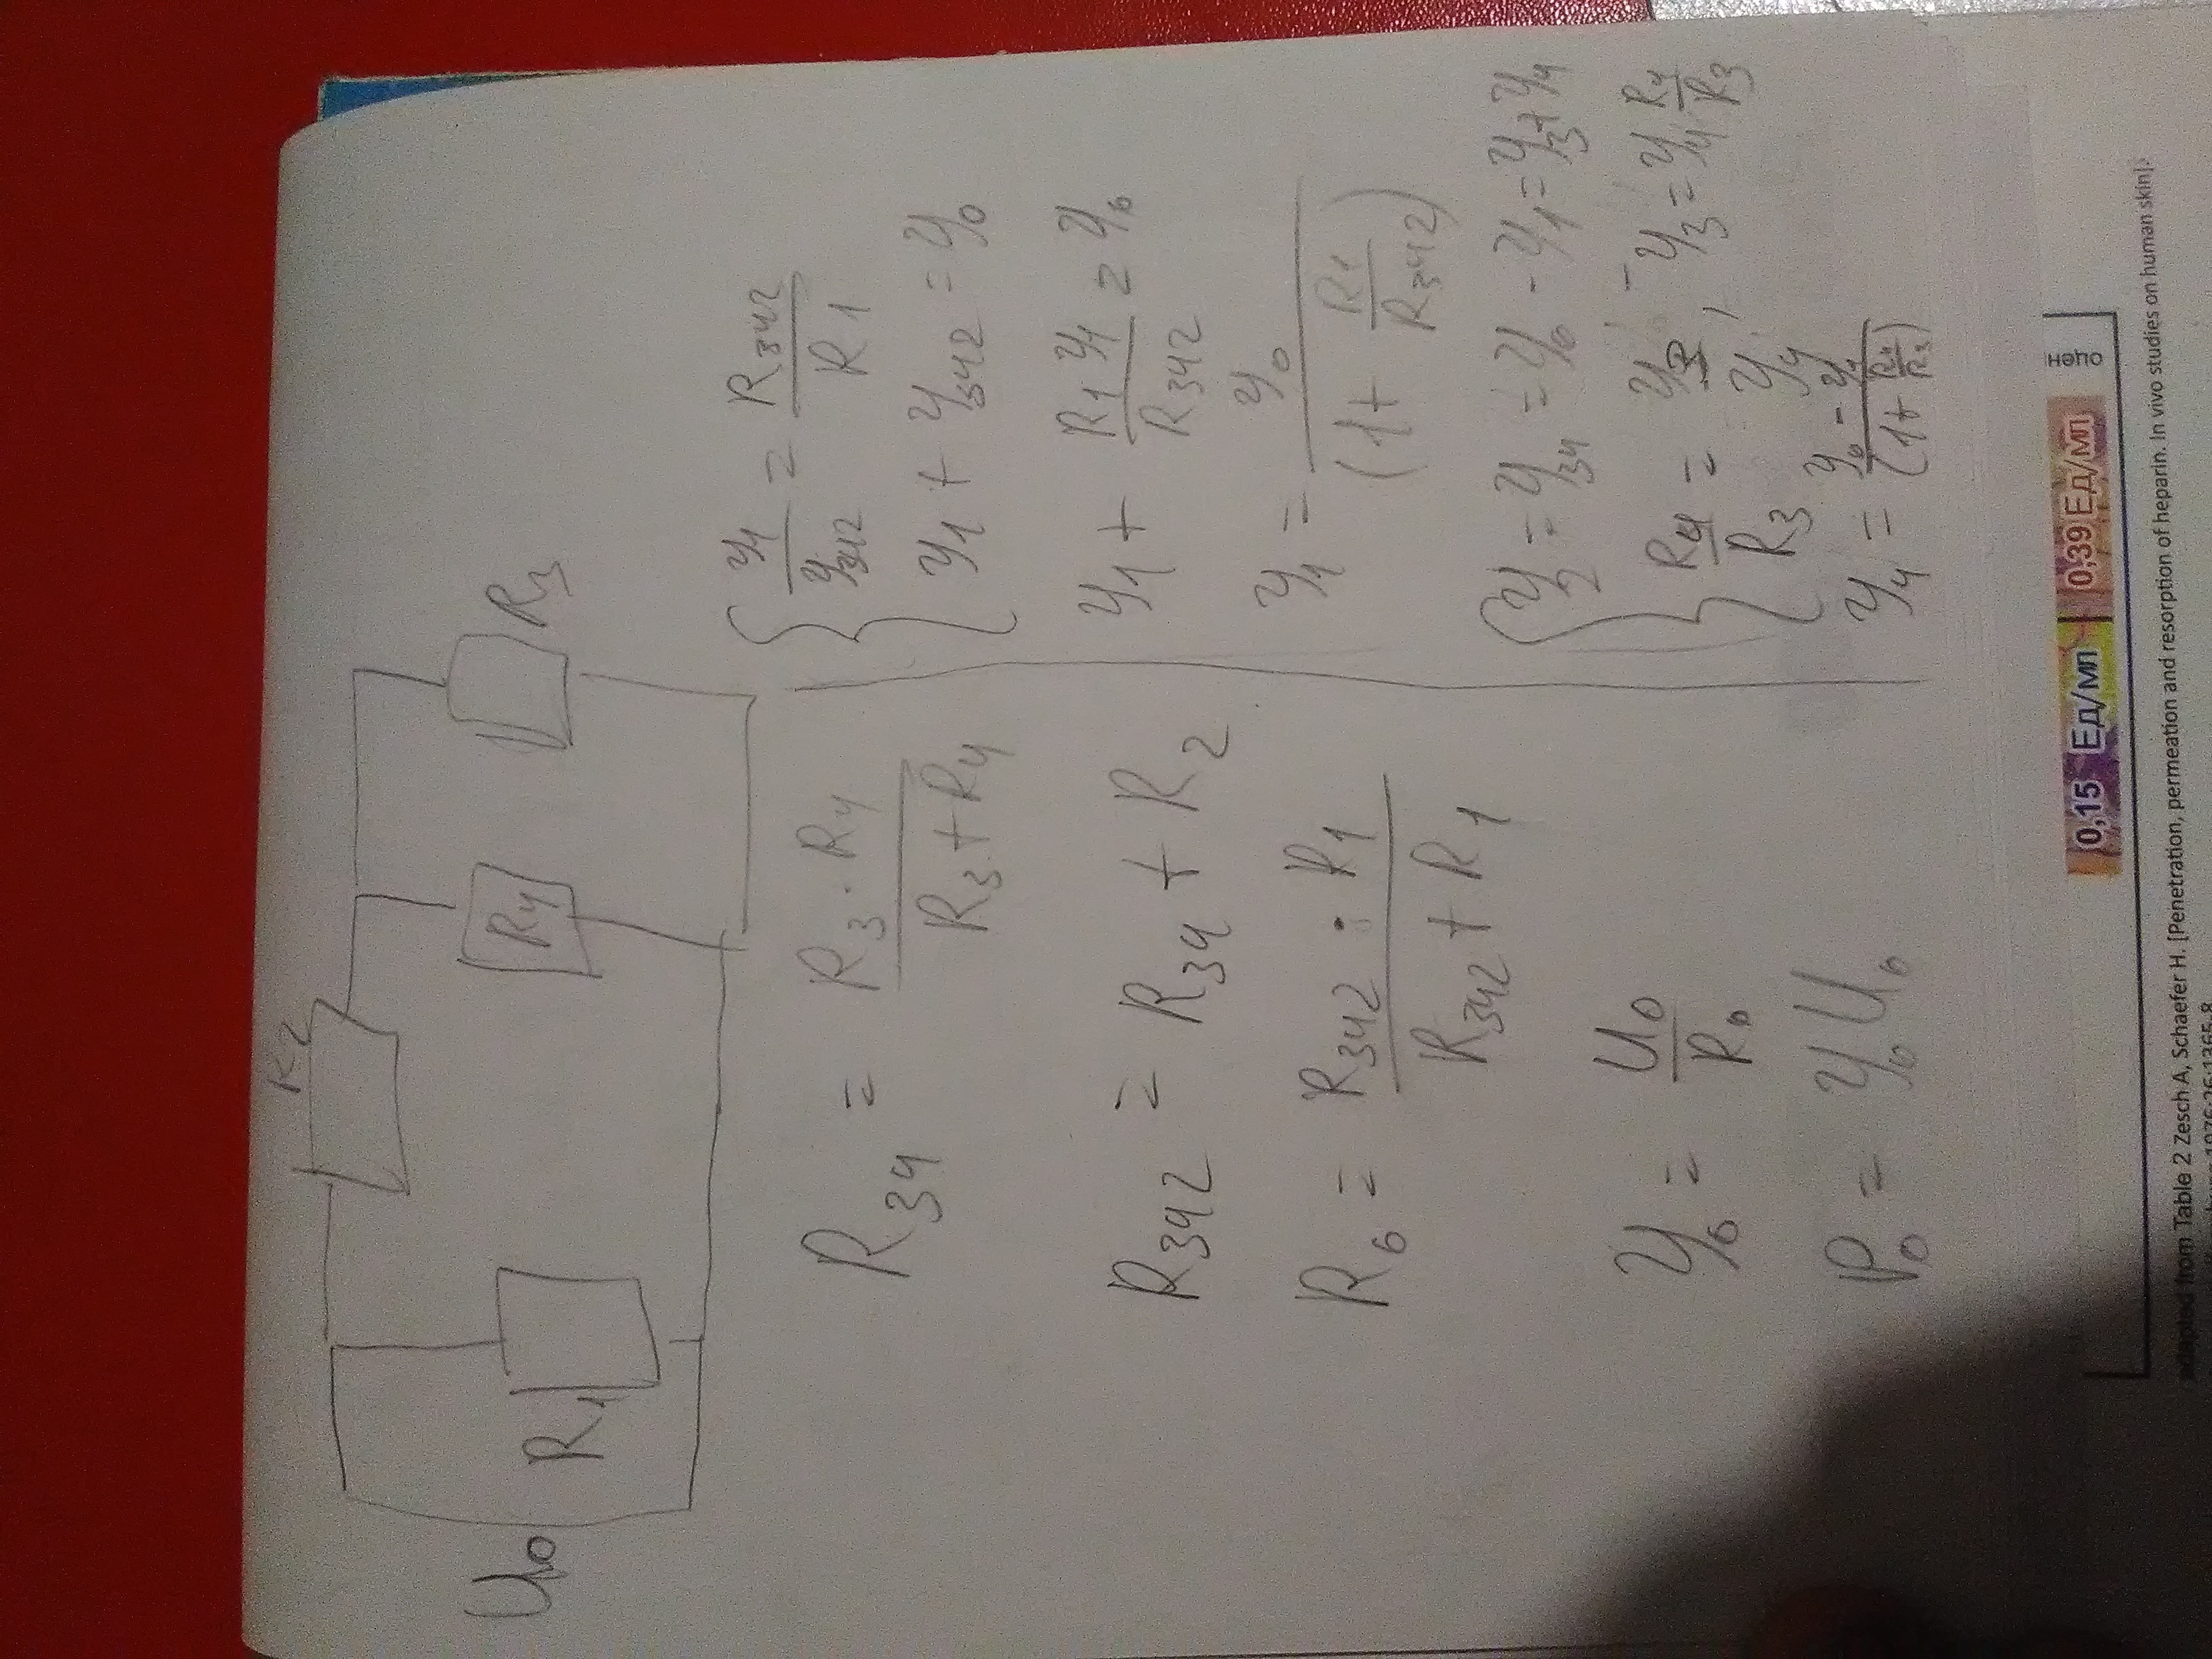 U0
R1
R2
R4
R3
R34 = R3 · R4 / R3 + R4
R342 = R34 + R2
R0 = R342 · R1 / R342 + R1
У0 = U0 / R0
P0 = У0 U0
У1 / У342 = R342 / R1
У1 + У342 = У0
У1 + R1 У1 / R342 = У0
У1 = У0 / (1 + R1 / R342)
У2 = У34 = У0 - У1 = У3 + У4
R4 / R3 = У3 / У4, У3 = У4 R4 / R3
У4 = У0 - У1 / (1 + R4 / R3)
0,15 Ед/мл
0,39 Ед/мл
adapted from Table 2 Zesch A, Schaefer H. [Penetration, permeation and resorption of heparin. In vivo studies on human skin]>
1976;26:1365-8